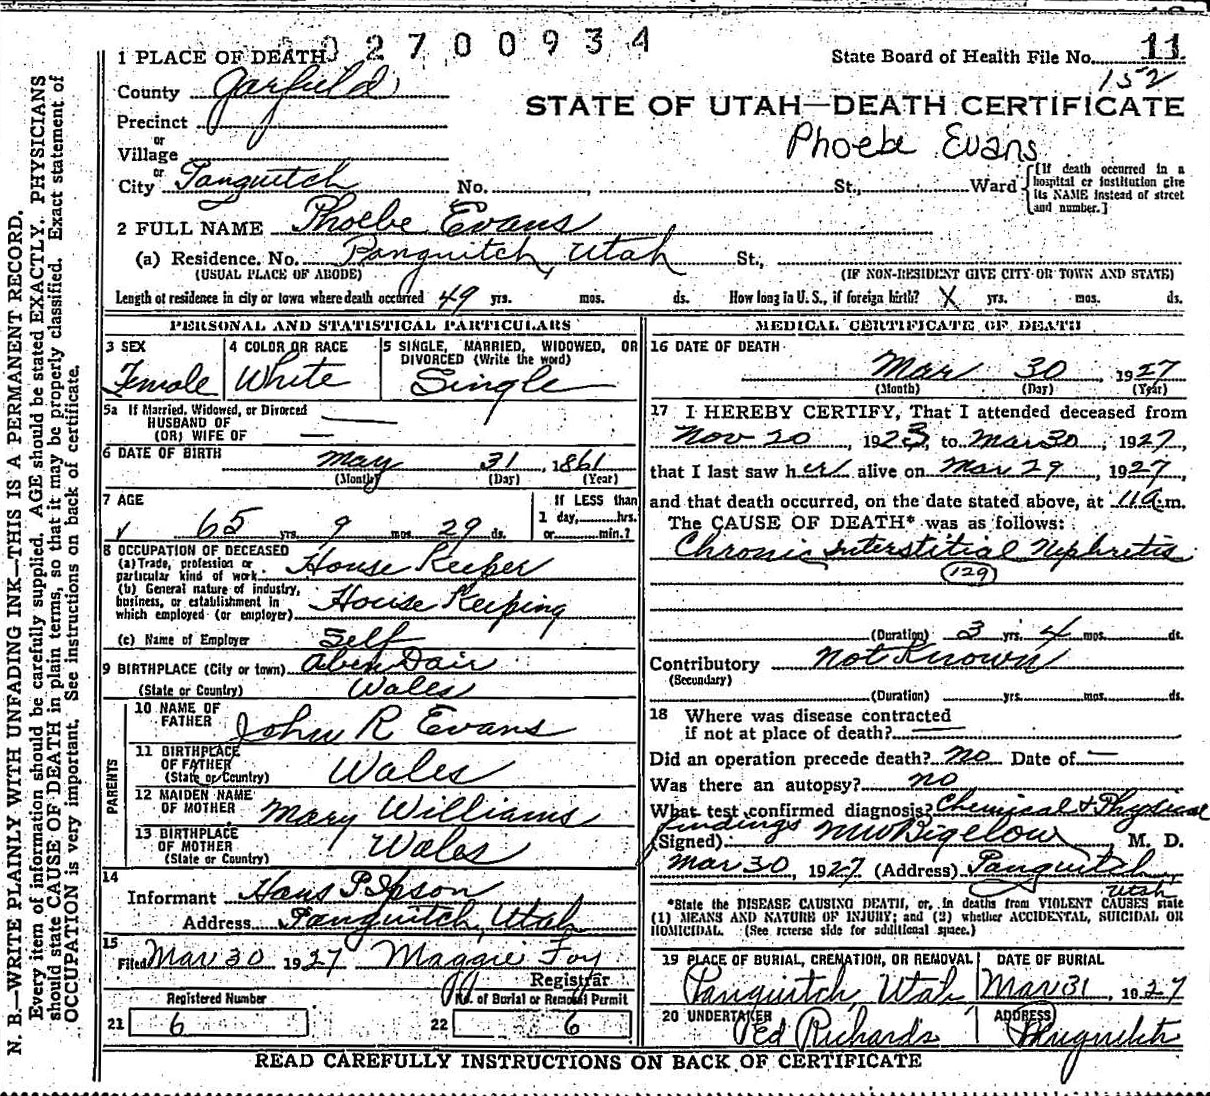 2700934
1 PLACE OF DEATH
State Board of Health File No. 11
152
County Garfield
STATE OF UTAH—DEATH CERTIFICATE
Precinct
Phoebe Evans
or
Village
or
City Panguitch No. , St., Ward
[If death occurred in a
hospital or institution give
its NAME instead of street
and number.]
2 FULL NAME Phoebe Evans
(a) Residence. No. Panguitch, Utah St.,
(USUAL PLACE OF ABODE) (IF NON-RESIDENT GIVE CITY OR TOWN AND STATE)
Length of residence in city or town where death occurred 49 yrs. mos. ds. How long in U. S., if foreign birth? X yrs. mos. ds.
PERSONAL AND STATISTICAL PARTICULARS
3 SEX
Female
4 COLOR OR RACE
White
5 SINGLE, MARRIED, WIDOWED, OR
DIVORCED (Write the word)
Single
5a If Married, Widowed, or Divorced
HUSBAND OF
(OR) WIFE OF
6 DATE OF BIRTH
May 31, 1861
(Month) (Day) (Year)
7 AGE
65 yrs. 9 mos. 29 ds.
If LESS than
1 day, hrs.
or min.?
8 OCCUPATION OF DECEASED
(a) Trade, profession or
particular kind of work House Keeper
(b) General nature of industry,
business, or establishment in
which employed (or employer) House Keeping
(c) Name of Employer Self
9 BIRTHPLACE (City or town) Aben Dair
(State or Country) Wales
PARENTS
10 NAME OF
FATHER John R Evans
11 BIRTHPLACE
OF FATHER
(State or Country) Wales
12 MAIDEN NAME
OF MOTHER Mary Williams
13 BIRTHPLACE
OF MOTHER
(State or Country) Wales
14
Informant Hans P Ipson
Address Panguitch, Utah
15
Filed Mar 30 1927 Maggie Foy
Registrar
Registered Number
21 6
No. of Burial or Removal Permit
22 6
MEDICAL CERTIFICATE OF DEATH
16 DATE OF DEATH
Mar 30, 1927
(Month) (Day) (Year)
17 I HEREBY CERTIFY, That I attended deceased from
Nov 20, 1923, to Mar 30, 1927,
that I last saw her alive on Mar 29, 1927,
and that death occurred, on the date stated above, at 11 a.m.
The CAUSE OF DEATH* was as follows:
Chronic Interstitial Nephritis
129
(Duration) 3 yrs. 4 mos. ds.
Contributory Not Known
(Secondary)
(Duration) yrs. mos. ds.
18 Where was disease contracted
if not at place of death?
Did an operation precede death? no Date of —
Was there an autopsy? no
What test confirmed diagnosis? Chemical & Physical
findings
(Signed) MW Bigelow, M. D.
Mar 30, 1927 (Address) Panguitch
Utah
*State the DISEASE CAUSING DEATH, or, in deaths from VIOLENT CAUSES state
(1) MEANS AND NATURE OF INJURY; and (2) whether ACCIDENTAL, SUICIDAL OR
HOMICIDAL. (See reverse side for additional space.)
19 PLACE OF BURIAL, CREMATION, OR REMOVAL
Panguitch, Utah
DATE OF BURIAL
Mar 31, 1927
20 UNDERTAKER
Ed Richards
ADDRESS
Panguitch
READ CAREFULLY INSTRUCTIONS ON BACK OF CERTIFICATE
N. B.—WRITE PLAINLY WITH UNFADING INK—THIS IS A PERMANENT RECORD.
Every item of information should be carefully supplied. AGE should be stated EXACTLY. PHYSICIANS
should state CAUSE OF DEATH in plain terms, so that it may be properly classified. Exact statement of
OCCUPATION is very important. See instructions on back of certificate.